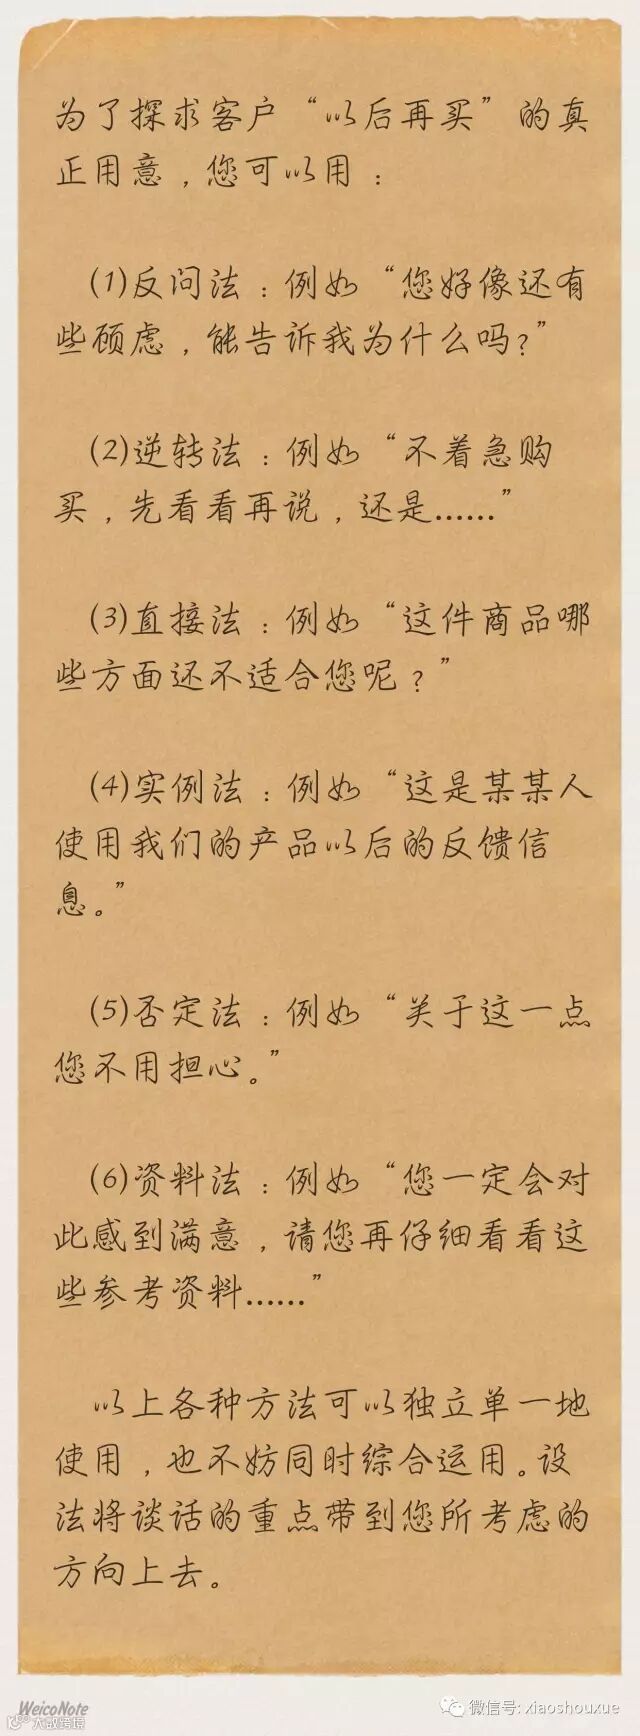 为了探求客户“以后再买”的真
正用意，您可以用：
(1)反问法：例如“您好像还有
些顾虑，能告诉我为什么吗?”
(2)逆转法：例如“不着急购
买，先看看再说，还是……”
(3)直接法：例如“这件商品哪
些方面还不适合您呢？”
(4)实例法：例如“这是某某人
使用我们的产品以后的反馈信
息。”
(5)否定法：例如“关于这一点
您不用担心。”
(6)资料法：例如“您一定会对
此感到满意，请您再仔细看看这
些参考资料……”
以上各种方法可以独立单一地
使用，也不妨同时综合运用。设
法将谈话的重点带到您所考虑的
方向上去。
WeicoNote
大数跨境
微信号: xiaoshouxue